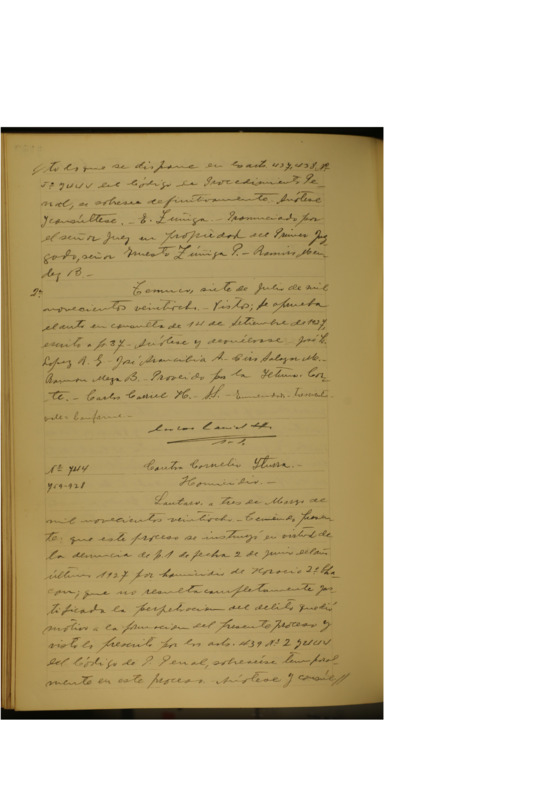 to lo que se dispone en los arts 437, 438, Nº
5º y 444 del Código de Procedimiento Pe-
nal, se sobresee definitivamente. Anótese
y consúltese. - E. Zúñiga. - Pronunciado por
el señor Juez en propiedad del Primer Juz-
gado, señor Ernesto Zúñiga P. - Ramiro Mén-
dez B -
2º Temuco, siete de Julio de mil
novecientos veintiocho. - Vistos; se aprueba
el auto en consulta de 1º de Setiembre de 1927,
escrito a fs 37. - Anótese y devuélvase. - José L.
López R. G - José Arancibia A. - Ciro Salazar M. -
Ramón Meza B. - Proveído por la Iltma. Cor-
te. - Carlos Casriel H. - S. -
Conforme. -
Nº 744 Contra Cornelio Iturra. -
Homicidio. -
Lautaro, a tres de Marzo de
mil novecientos veintiocho. - Teniendo presen-
te: que este proceso se instruyó en virtud de
la denuncia de fs 1 de fecha 2 de Junio del año
último 1927 por homicidio de Horacio 2º Cha-
cón; que no resulta completamente jus-
tificada la perpetración del delito que dió
motivo a la formación del presente proceso y
visto lo prescrito por los arts. 439 Nº 2 y 444
del Código de P. Penal, sobreséese temporal-
mente en este proceso. Anótese y consúl//